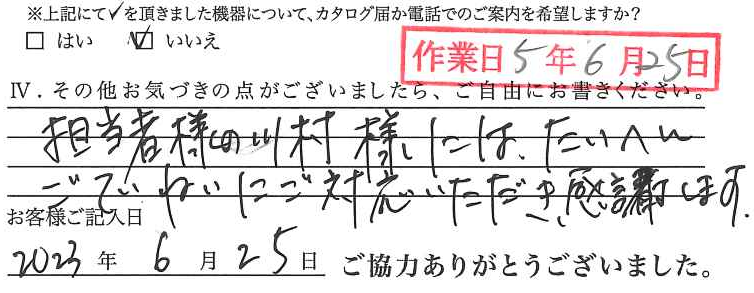 ※上記にて✓を頂きました機器について、カタログ届か電話でのご案内を希望しますか?
□ はい ☑ いいえ
作業日 5年6月25日
Ⅳ．その他お気づきの点がございましたら、ご自由にお書きください。
担当者様の川村様には、たいへん
ごていねいにご対応いただき、感謝します.
お客様ご記入日
2023年 6月25日 ご協力ありがとうございました。